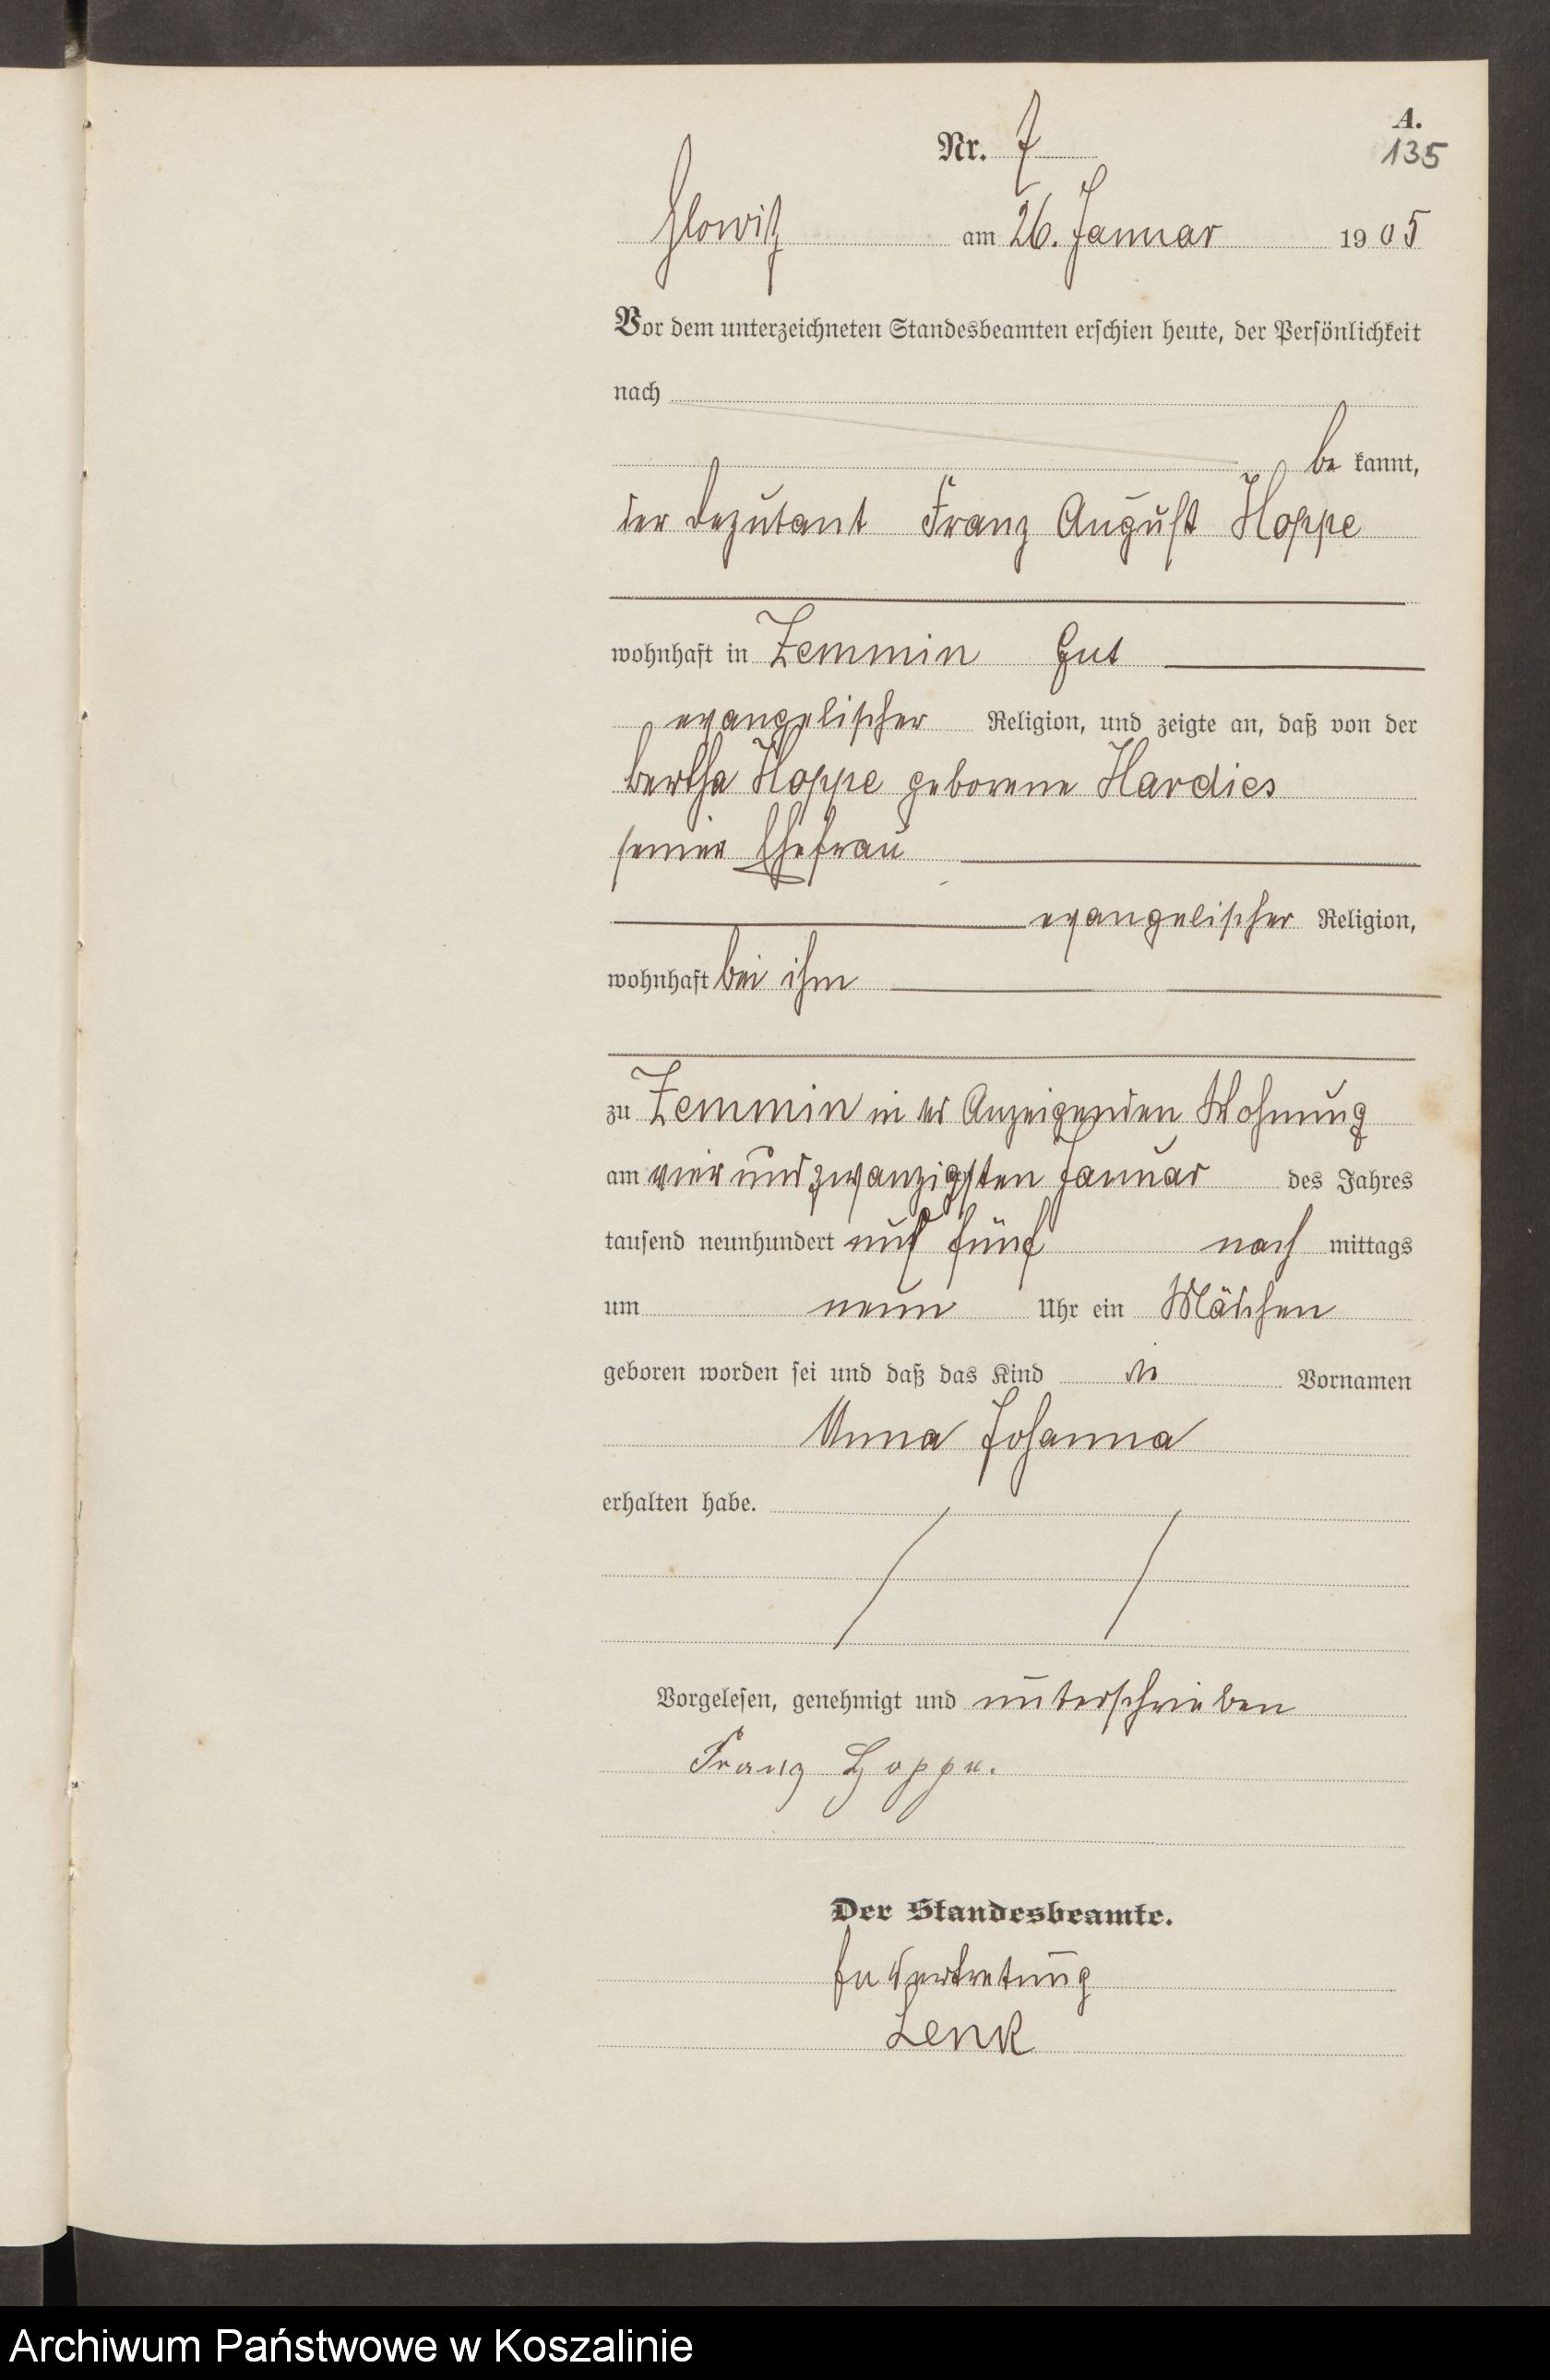 A.
Nr. 7
135
Glowitz am 26. Januar 1905
Vor dem unterzeichneten Standesbeamten erschien heute, der Persönlichkeit
nach
be kannt,
der Deputant Franz August Hoppe
wohnhaft in Zemmin Gut
evangelischer Religion, und zeigte an, daß von der
Bertha Hoppe geborene Hardies
seiner Ehefrau
evangelischer Religion,
wohnhaft bei ihm
zu Zemmin in des Anzeigenden Wohnung
am vier und zwanzigsten Januar des Jahres
tausend neunhundert und fünf nach mittags
um neun Uhr ein Mädchen
geboren worden sei und daß das Kind die Vornamen
Anna Johanna
erhalten habe.
Vorgelesen, genehmigt und unterschrieben
Franz Hoppe.
Der Standesbeamte.
In Vertretung
Lenk
Archiwum Państwowe w Koszalinie